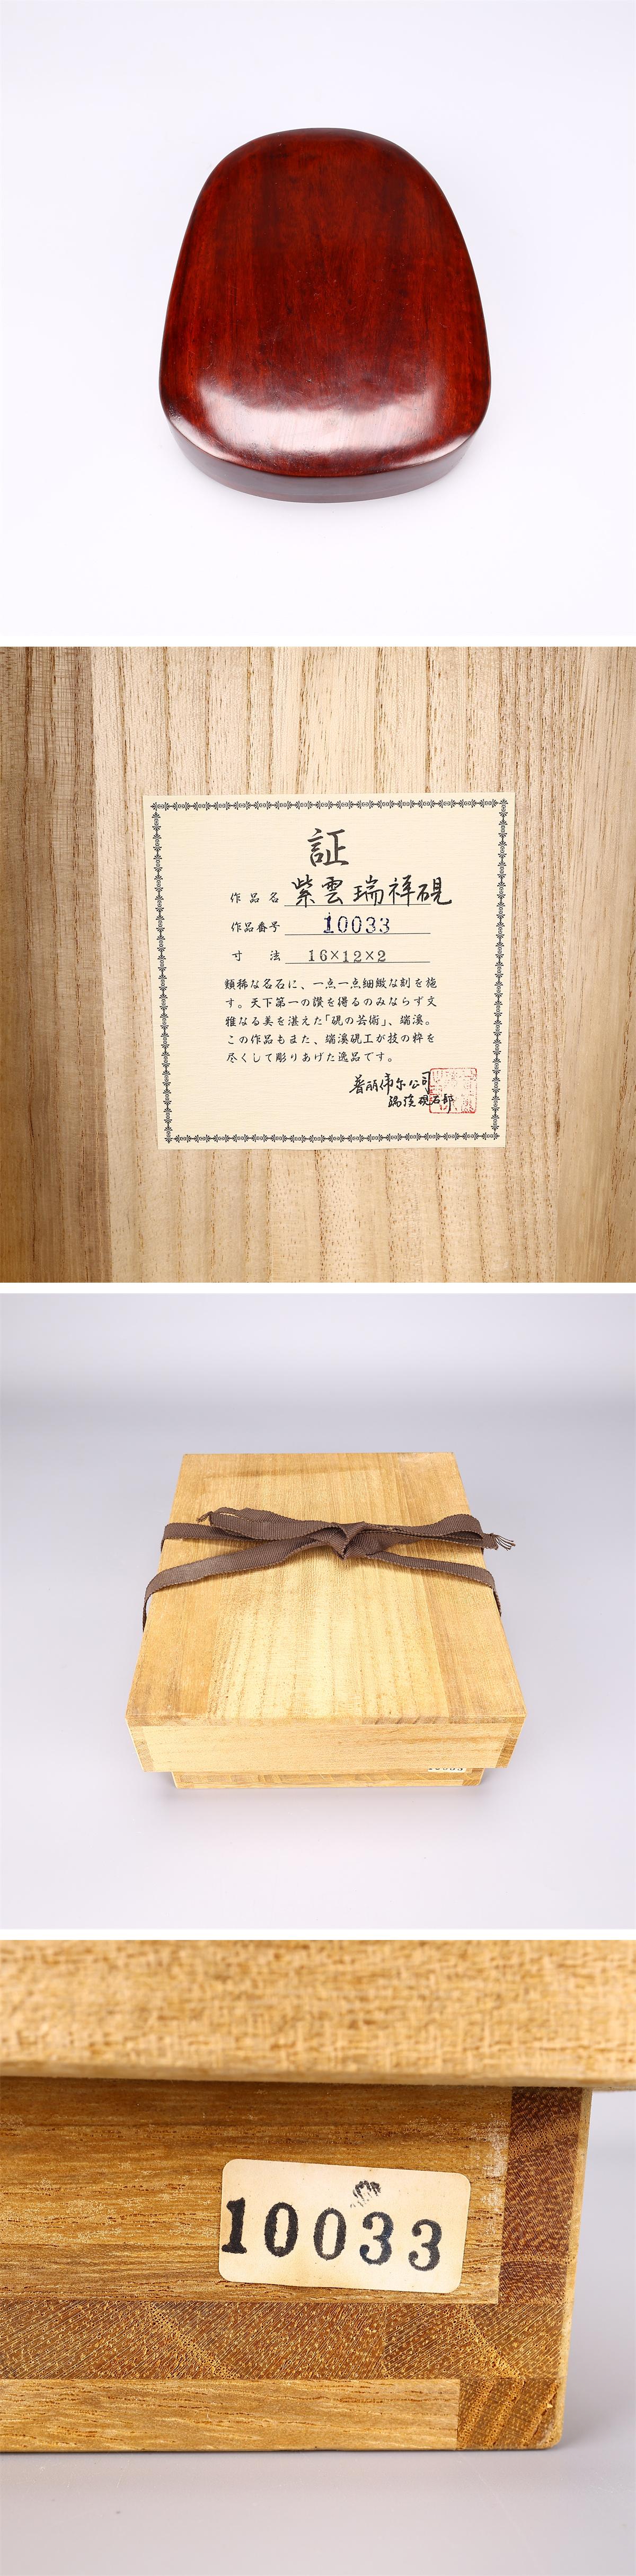 証
作品名 紫雲瑞祥硯
作品番号 10033
寸法 16×12×2
類稀な名石に、一点一点細緻な刻を施
す。天下第一の讃を得るのみならず文
雅なる美を湛えた「硯の芸術」、端溪。
この作品もまた、端溪硯工が技の粋を
尽くして彫りあげた逸品です。
端溪硯石部
10033